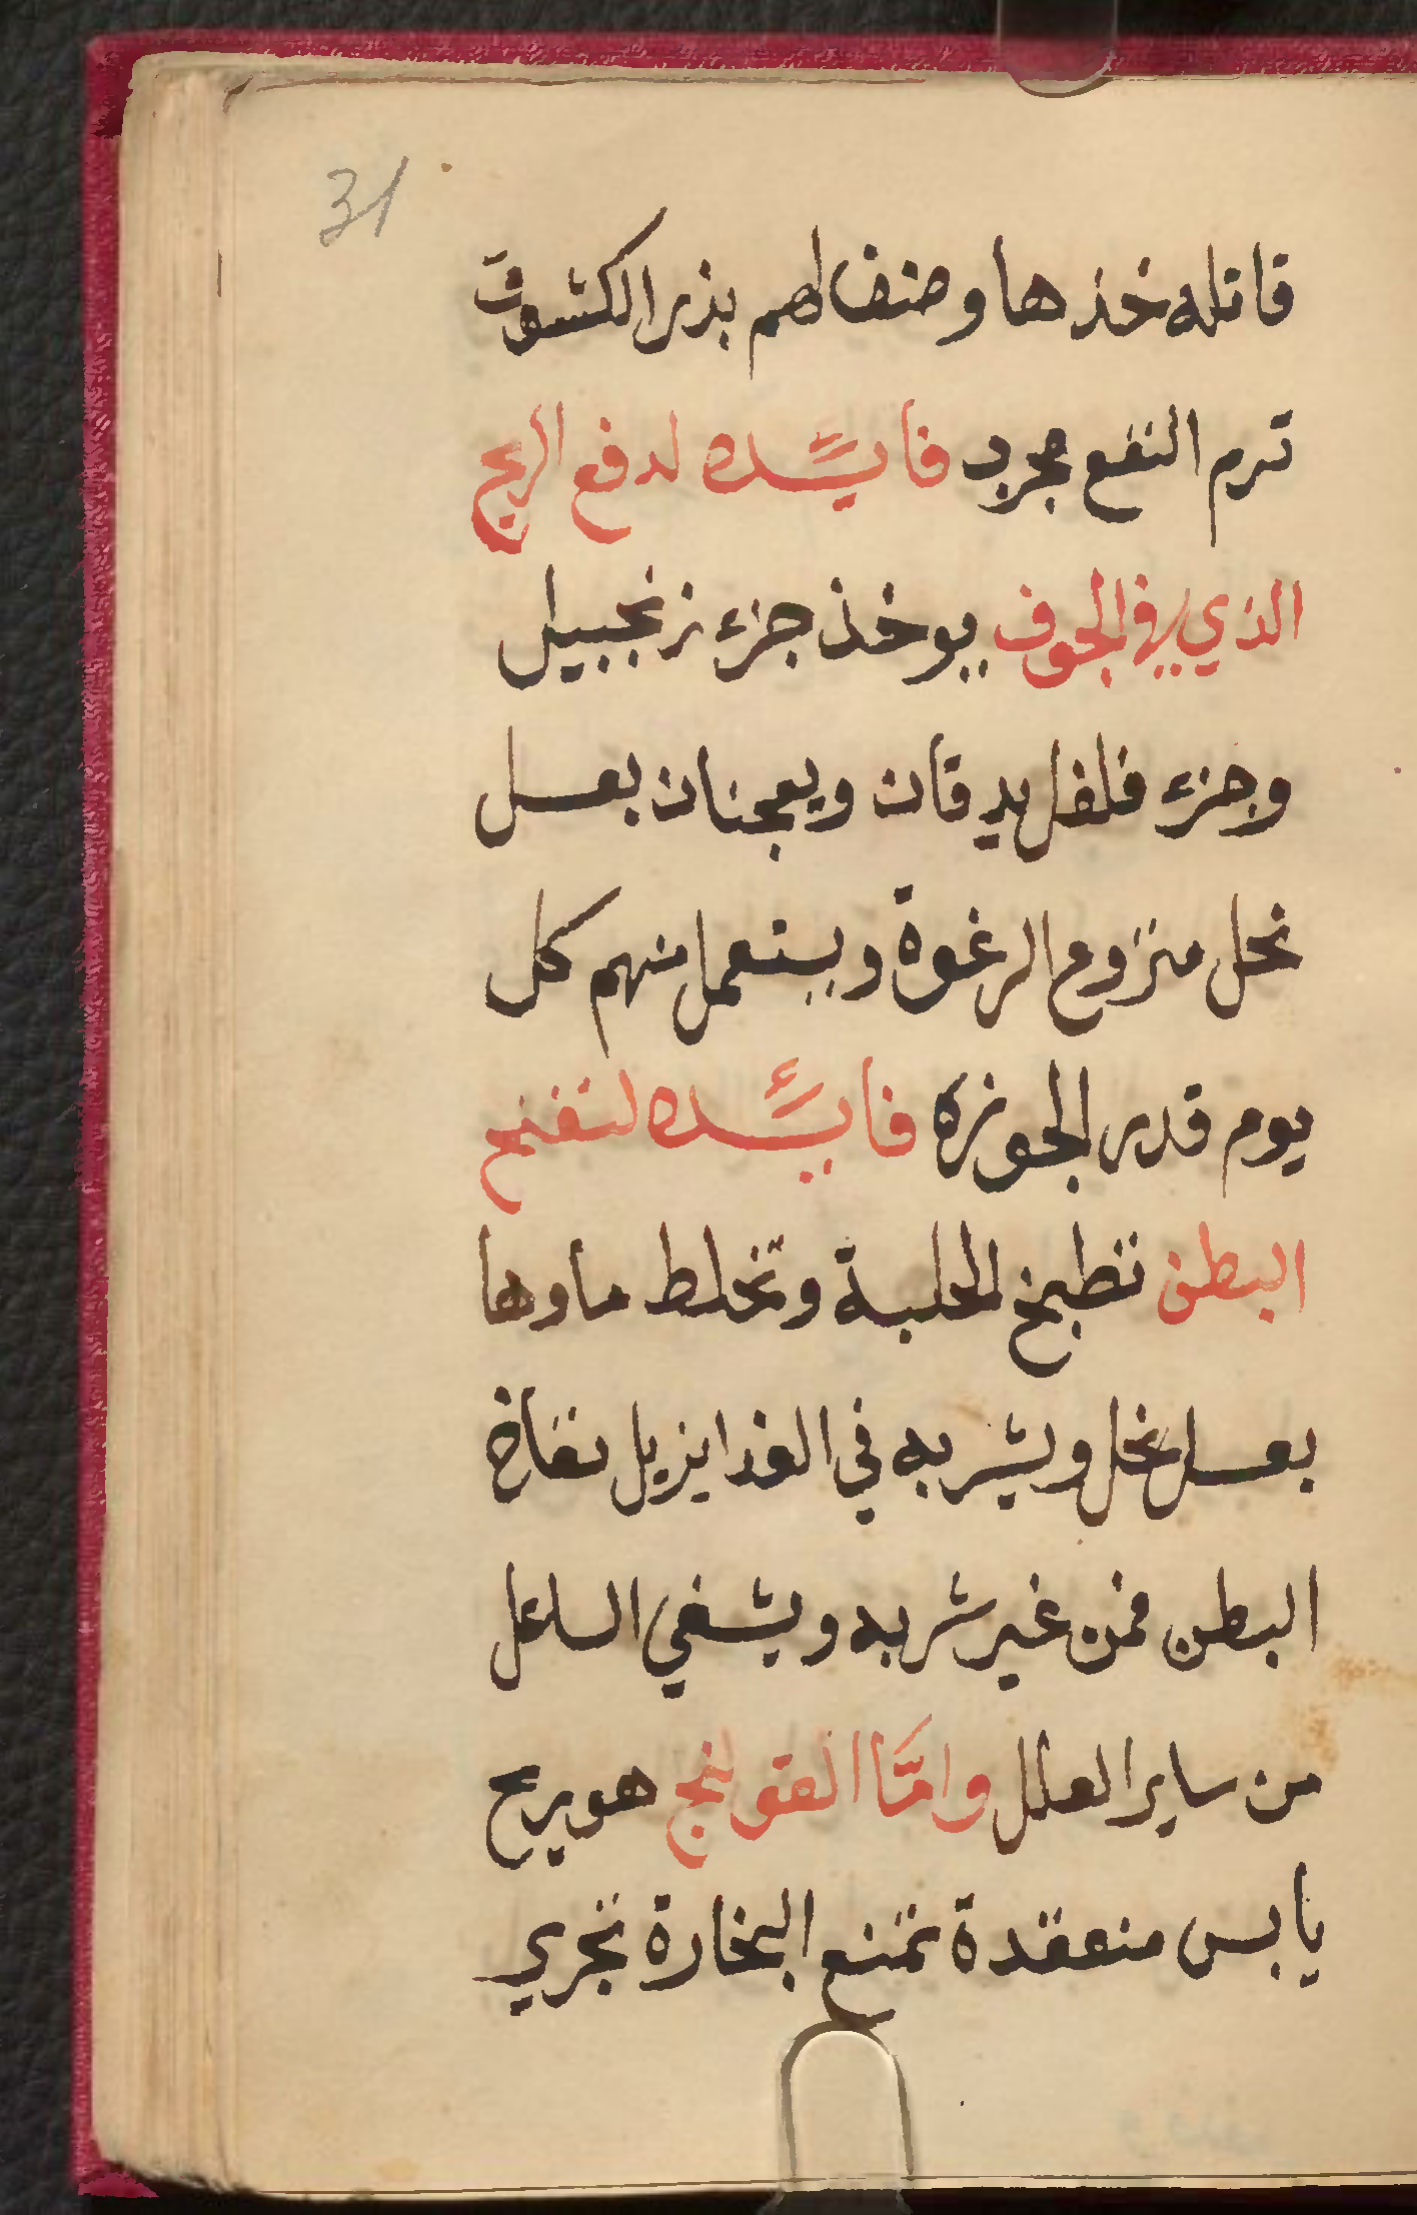 31
قاتله خذها وضف لهم بذر الكشوت
ترم النفع مجرب فايده لدفع الريح
الذي في الجوف يوخذ جزء زنجبيل
وجزء فلفل يدقان ويعجنان بعسل
نحل منزوع الرغوة ويستعمل منهم كل
يوم قدر الجوزه فايده لنفخ
البطن تطبخ الحلبة وتخلط ماوها
بعسل نحل ويشربه في الغدا يزيل نفاخ
البطن فمن غير شربه ويشفي السلعل
من ساير العلل وامّا القولنج هو يريح
يابس منعقدة تمنع البخارة تجري